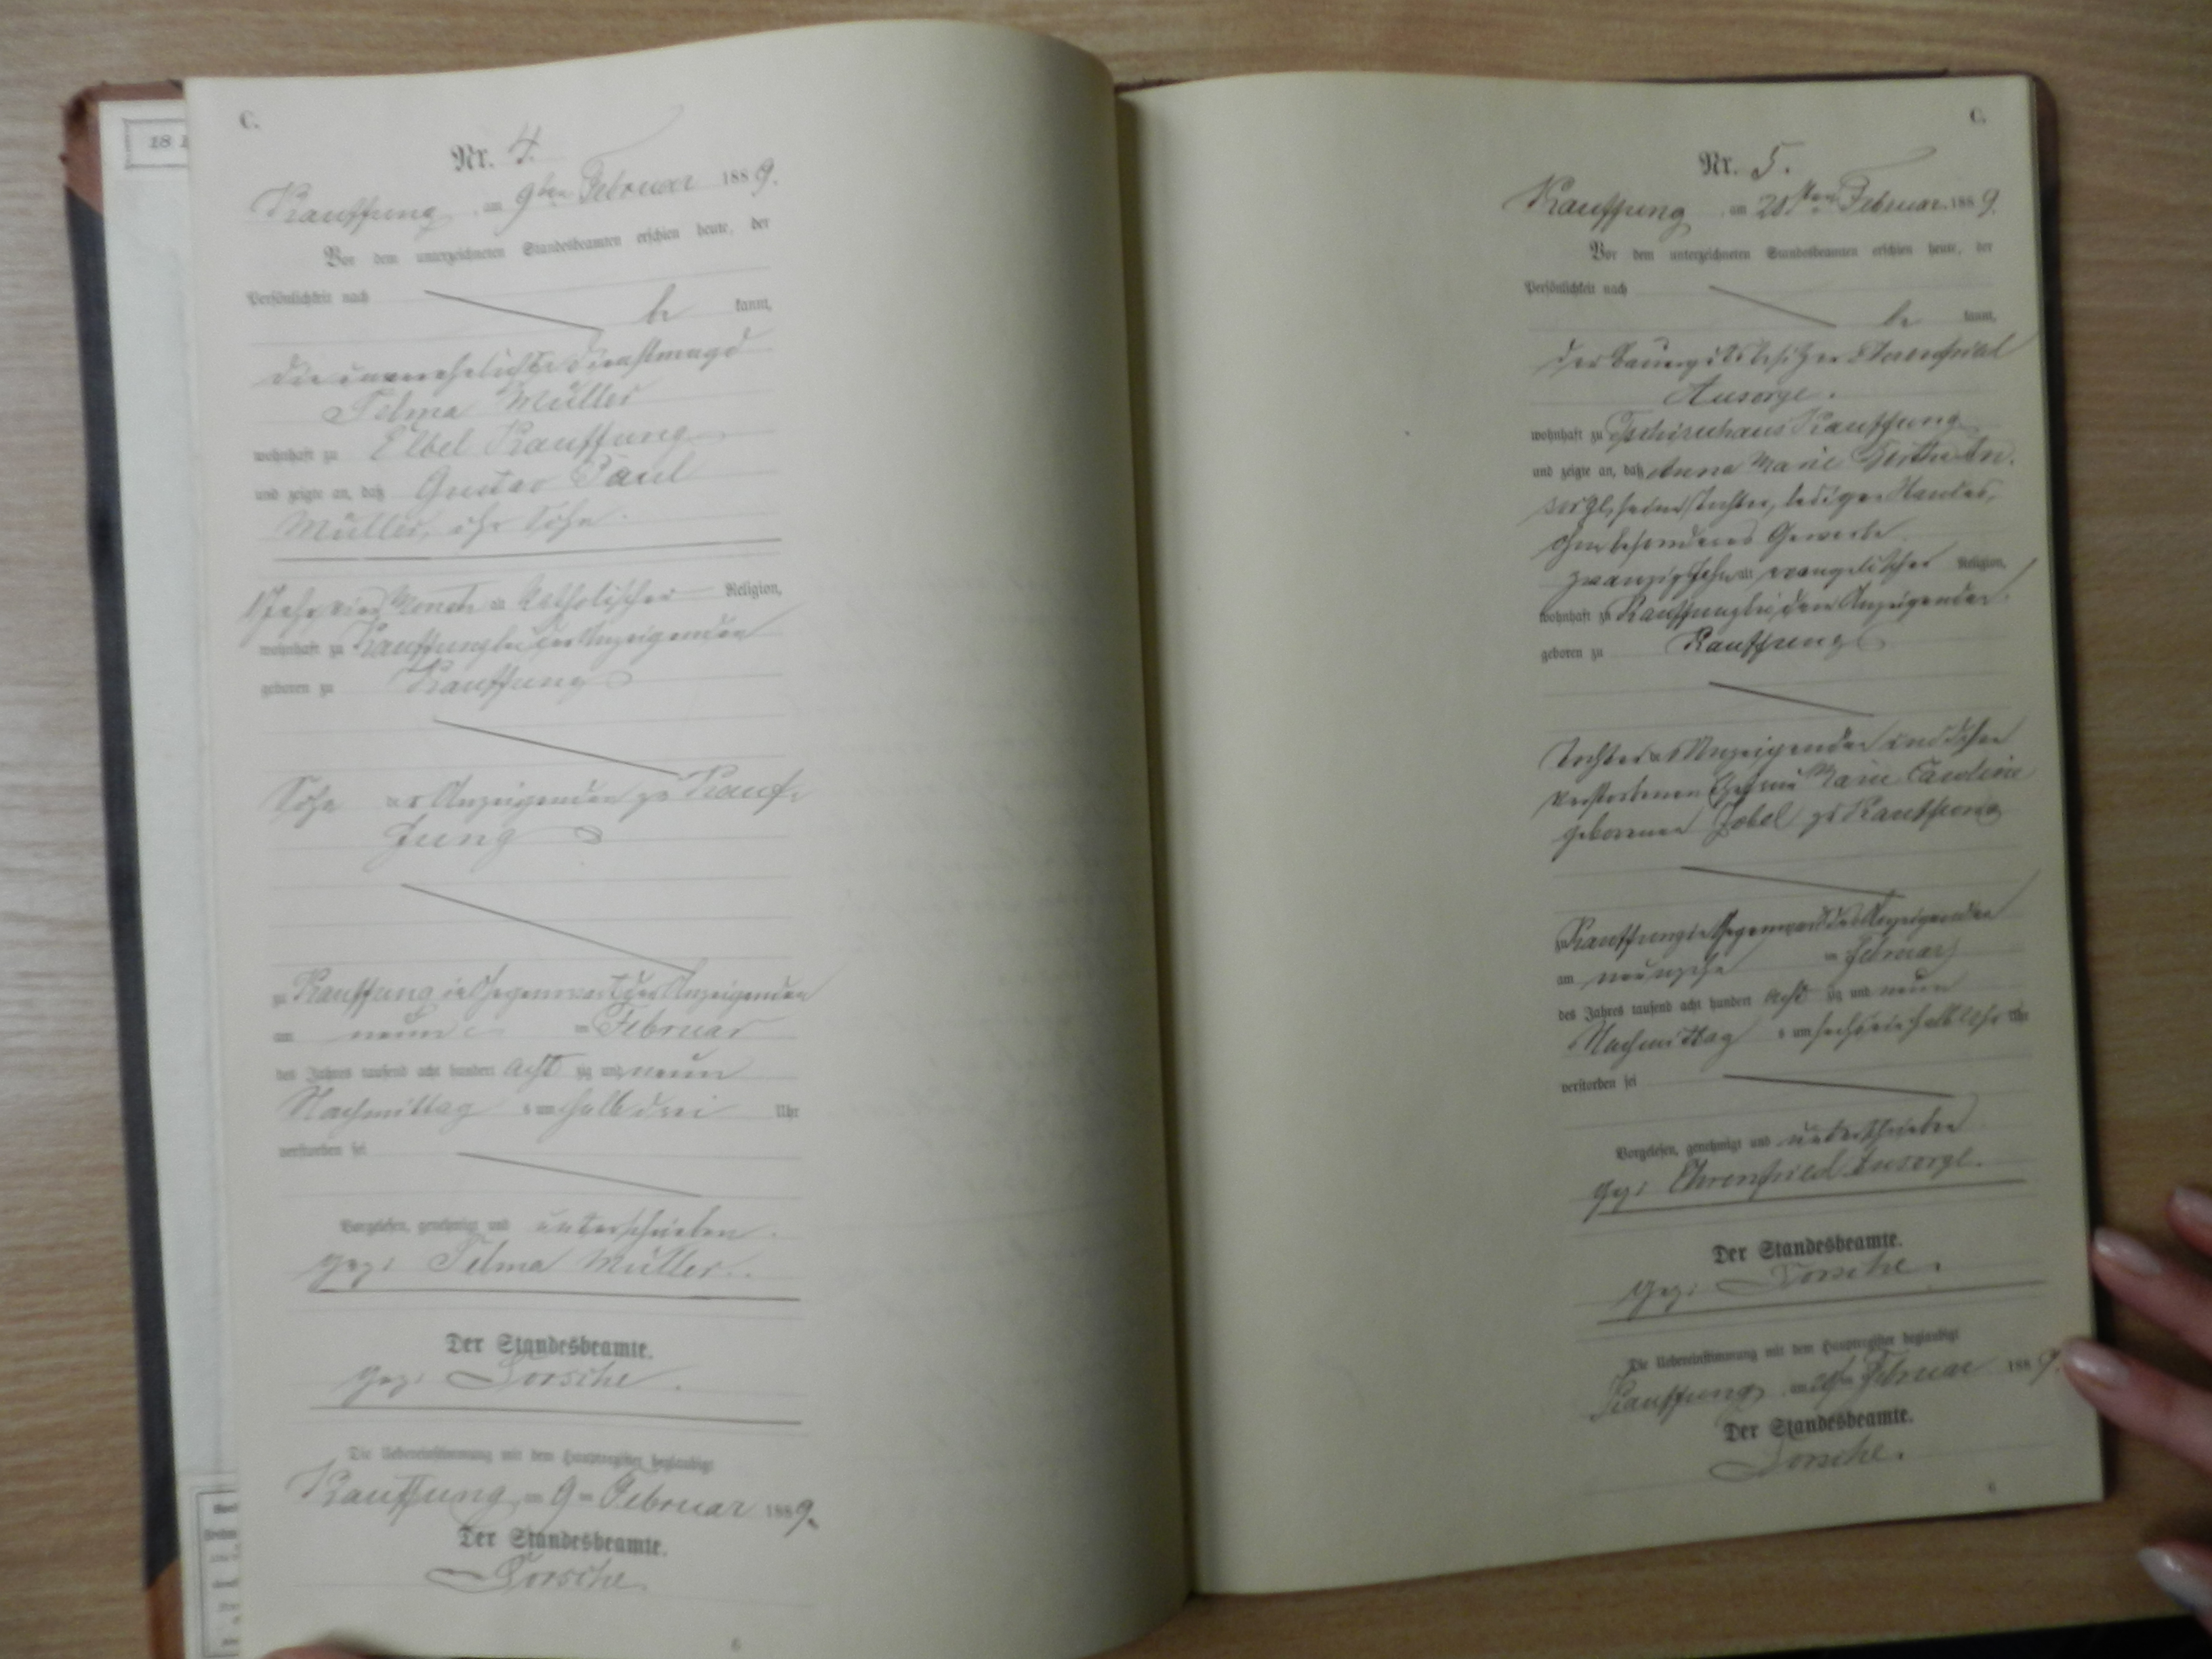 C.
Nr. 4.
Kauffung, am 9ten Februar 1889.
Vor dem unterzeichneten Standesbeamten erschien heute, der
Persönlichkeit nach
be kannt,
die unverehelichte Dienstmagd
Selma Müller
wohnhaft zu Elbel Kauffung
und zeigte an, daß Gustav Paul
Müller, ihr Sohn
1 Jahr vier Monate alt katholischer Religion,
wohnhaft zu Kauffung bei der Anzeigenden
geboren zu Kauffung
Sohn der Anzeigenden zu Kauf-
fung
zu Kauffung in Gegenwart der Anzeigenden
am neunten Februar
des Jahres tausend acht hundert acht zig und neun
Nachmittag s um halb drei Uhr
verstorben sei
Vorgelesen, genehmigt und unterschrieben.
gez: Selma Müller.
Der Standesbeamte.
gez:
Die Uebereinstimmung mit dem Hauptregister beglaubigt
Kauffung, am 9ten Februar 1889.
Der Standesbeamte.
6
18
C.
Nr. 5.
Kauffung, am Februar 1889.
Vor dem unterzeichneten Standesbeamten erschien heute, der
Persönlichkeit nach
be kannt,
der Bauergutsbesitzer Ehrenfried
Ansorge.
wohnhaft zu Tschirnhaus Kauffung
und zeigte an, daß Anna Marie Bertha An-
sorge, seine Tochter, ledigen Standes,
ohne besonderes Gewerbe
zwanzig Jahre alt evangelischer Religion,
wohnhaft zu Kauffung bei dem Anzeigenden
geboren zu Kauffung
Tochter des Anzeigenden und dessen
verstorbenen Ehefrau Marie Caroline
geborenen Zobel zu Kauffung
zu Kauffung in Gegenwart des Anzeigenden
am neunzehn Februar
des Jahres tausend acht hundert acht zig und neun
Nachmittag s um sechseinhalb Uhr Uhr
verstorben sei
Vorgelesen, genehmigt und unterschrieben
gez: Ehrenfried Ansorge.
Der Standesbeamte.
gez:
Die Uebereinstimmung mit dem Hauptregister beglaubigt
Kauffung, am Februar 1889.
Der Standesbeamte.
6